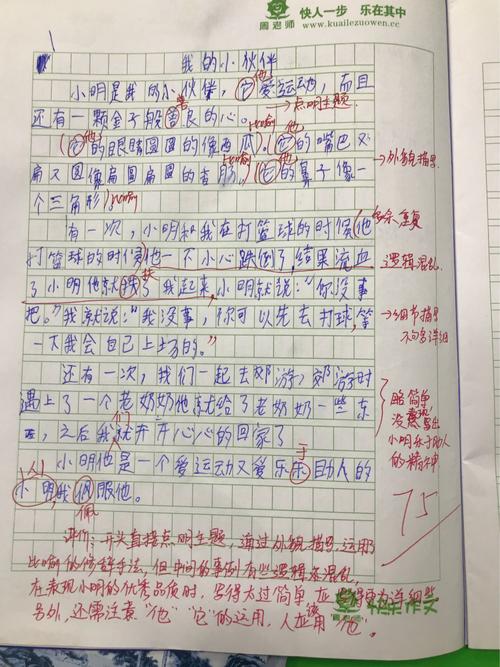 周老师
快人一步 乐在其中
www.kuailezuowen.cc
我的小伙伴
小明是我的小伙伴，它爱运动，而且
他
点明主题
还有一颗金子般 良的心。
善
它的眼睛圆圆的像西瓜。它的嘴巴又
他
比喻
他
扁又圆像扁圆扁圆的香肠。它的鼻子像一
比喻
他
外貌描写
个三角形
比喻
有一次，小明和我在打篮球的时候他
多余 重复
打篮球的时候他一下小心跌倒了，结果流血
逻辑混乱
了小明他就 了我起来，小明就说：“你没事
扶
把。”我就说：“我没事，你可以先去打球，等
细节描写
不够详细
一下我会自己上场的。”
还有一次，我们一起去郊游，郊游时
遇上了一个老奶奶他就给了老奶奶一些东
西，之后我就开开心心的回家了
们
略简单
没表现出
小明乐于助人
的精神
小明他是一个爱运动又爱乐 助人的
于
人
小明，我佩服他。
佩
75
评价：开头直接点明主题，通过外貌描写，运用
比喻的修辞手法，但中间的事例有些逻辑不混乱，
在表现小明的优秀品质时，写得太过简单，应 写得更为详细些
另外，还需注意“他”“它”的运用，人应该用“他”。
快乐作文